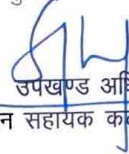 उपखण्ड अ
न सहायक क